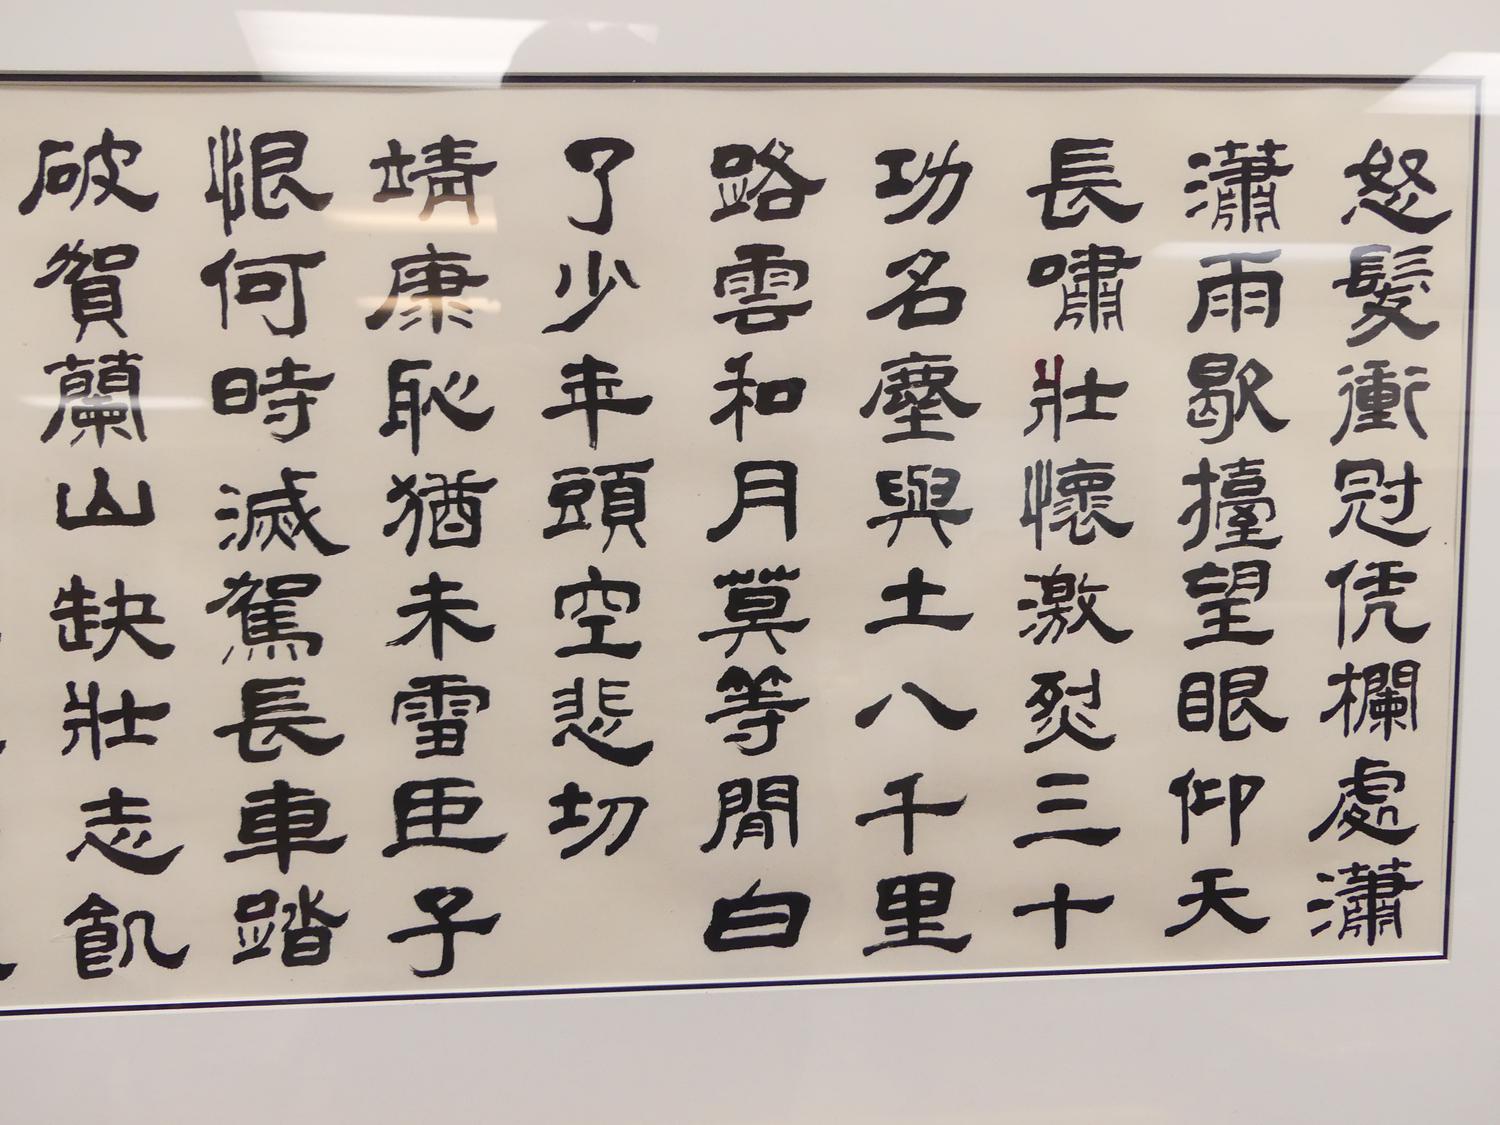 怒髮衝冠凭欄處瀟
瀟雨歇擡望眼仰天
長嘯壯懷激烈三十
功名塵與土八千里
路雲和月莫等閒白
了少年頭空悲切
靖康恥猶未雪臣子
恨何時滅駕長車踏
破賀蘭山缺壯志飢